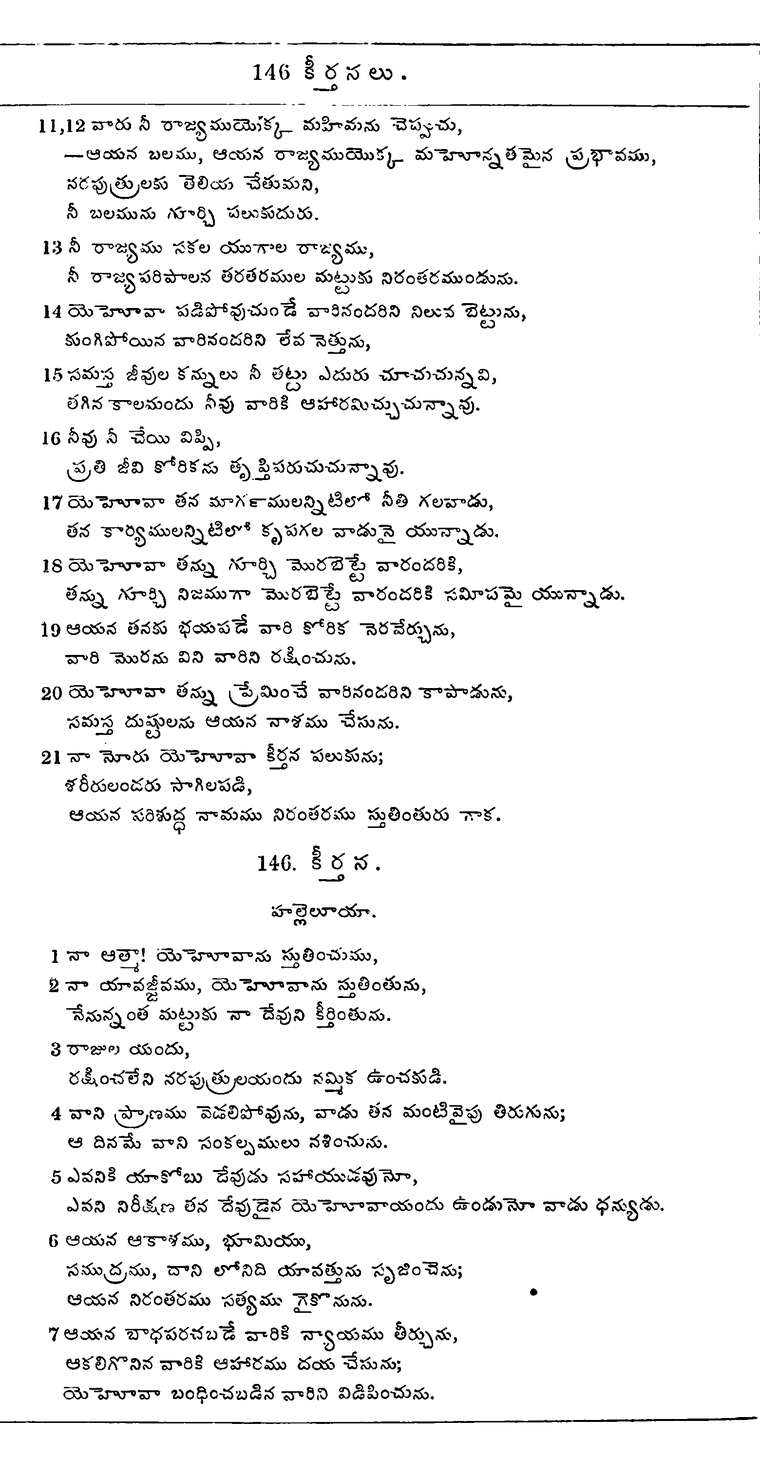 146 కీర్తనలు.
11,12 వారు నీ రాజ్యముయొక్క మహిమను చెప్పుచు,
—ఆయన బలము, ఆయన రాజ్యముయొక్క మహెూన్నతమైన ప్రభావము,
నరపుత్రులకు తెలియ చేతుమని,
నీ బలమును గూర్చి పలుకుదురు.
13 నీ రాజ్యము సకల యుగాల రాజ్యము,
నీ రాజ్యపరిపాలన తరతరముల మట్టుకు నిరంతరముండును.
14 యెహెూవా పడిపోవుచుండే వారినందరిని నిలువ బెట్టును,
కుంగిపోయిన వారినందరిని లేవ నెత్తును,
15 సమస్త జీవుల కన్నులు నీ తట్టు ఎదురు చూచుచున్నవి,
తగిన కాలమందు నీవు వారికి ఆహారమిచ్చుచున్నావు.
16 నీవు నీ చేయి విప్పి,
ప్రతి జీవి కోరికను తృప్తిపరుచుచున్నావు.
17 యెహెూవా తన మార్గములన్నిటిలో నీతి గలవాడు,
తన కార్యములన్నిటిలో కృపగల వాడునై యున్నాడు.
18 యెహెూవా తన్ను గూర్చి మొరబెట్టే వారందరికి,
తన్ను గూర్చి నిజముగా మొరబెట్టే వారందరికి సమీపమై యున్నాడు.
19 ఆయన తనకు భయపడే వారి కోరిక నెరవేర్చును,
వారి మొరను విని వారిని రక్షించును.
20 యెహెూవా తన్ను ప్రేమించే వారినందరిని కాపాడును,
సమస్త దుష్టులను ఆయన నాశము చేసును.
21 నా నోరు యెహెూవా కీర్తన పలుకును;
శరీరులందరు సాగిలపడి,
ఆయన పరిశుద్ధ నామము నిరంతరము స్తుతింతురు గాక.
146. కీర్తన.
హల్లెలూయా.
1 నా ఆత్మా! యెహెూవాను స్తుతించుము,
2 నా యావజ్జీవము, యెహెూవాను స్తుతింతును,
నేనున్నంత మట్టుకు నా దేవుని కీర్తింతును.
3 రాజుల యందు,
రక్షించలేని నరపుత్రులయందు నమ్మిక ఉంచకుడి.
4 వాని ప్రాణము వెడలిపోవును, వాడు తన మంటివైపు తిరుగును;
ఆ దినమే వాని సంకల్పములు నశించును.
5 ఎవనికి యాకోబు దేవుడు సహాయుడవునో,
ఎవని నిరీక్షణ తన దేవుడైన యెహెూవాయందు ఉండునో వాడు ధన్యుడు.
6 ఆయన ఆకాశము, భూమియు,
సముద్రము, దాని లోనిది యావత్తును సృజించెను;
ఆయన నిరంతరము సత్యము గైకొనును.
7 ఆయన బాధపరచబడే వారికి న్యాయము తీర్చును,
ఆకలిగొనిన వారికి ఆహారము దయ చేసును;
యెహెూవా బంధించబడిన వారిని విడిపించును.